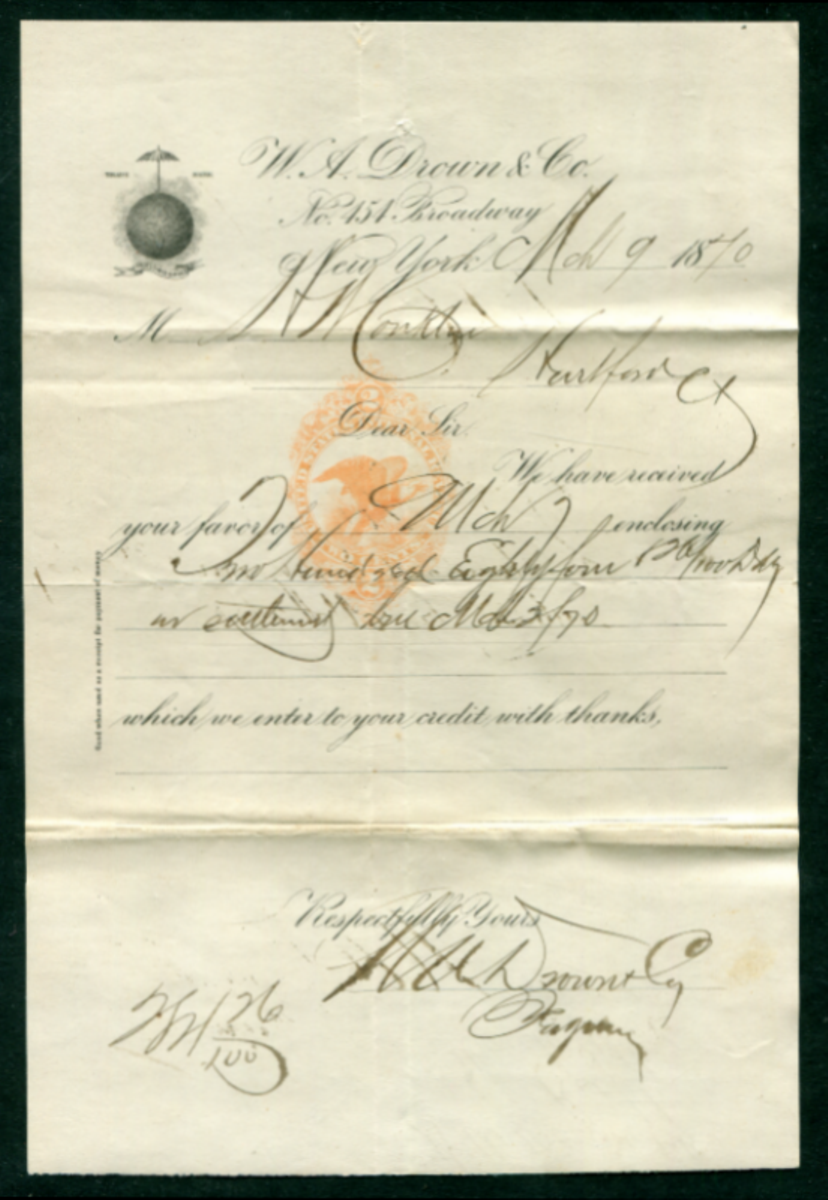 W. A. Drown & Co.
No. 451 Broadway
TRADE MARK
New York Mch 9 1870
M
Hartford Ct
Dear Sir
We have received
your favor of Mch 7 enclosing
Two Hundred Eighty four 126/100 
Mch 2/70
which we enter to your credit with thanks,
Good when used as a receipt for payment of money
Respectfully Yours
W A Drown & Co
284 26/100